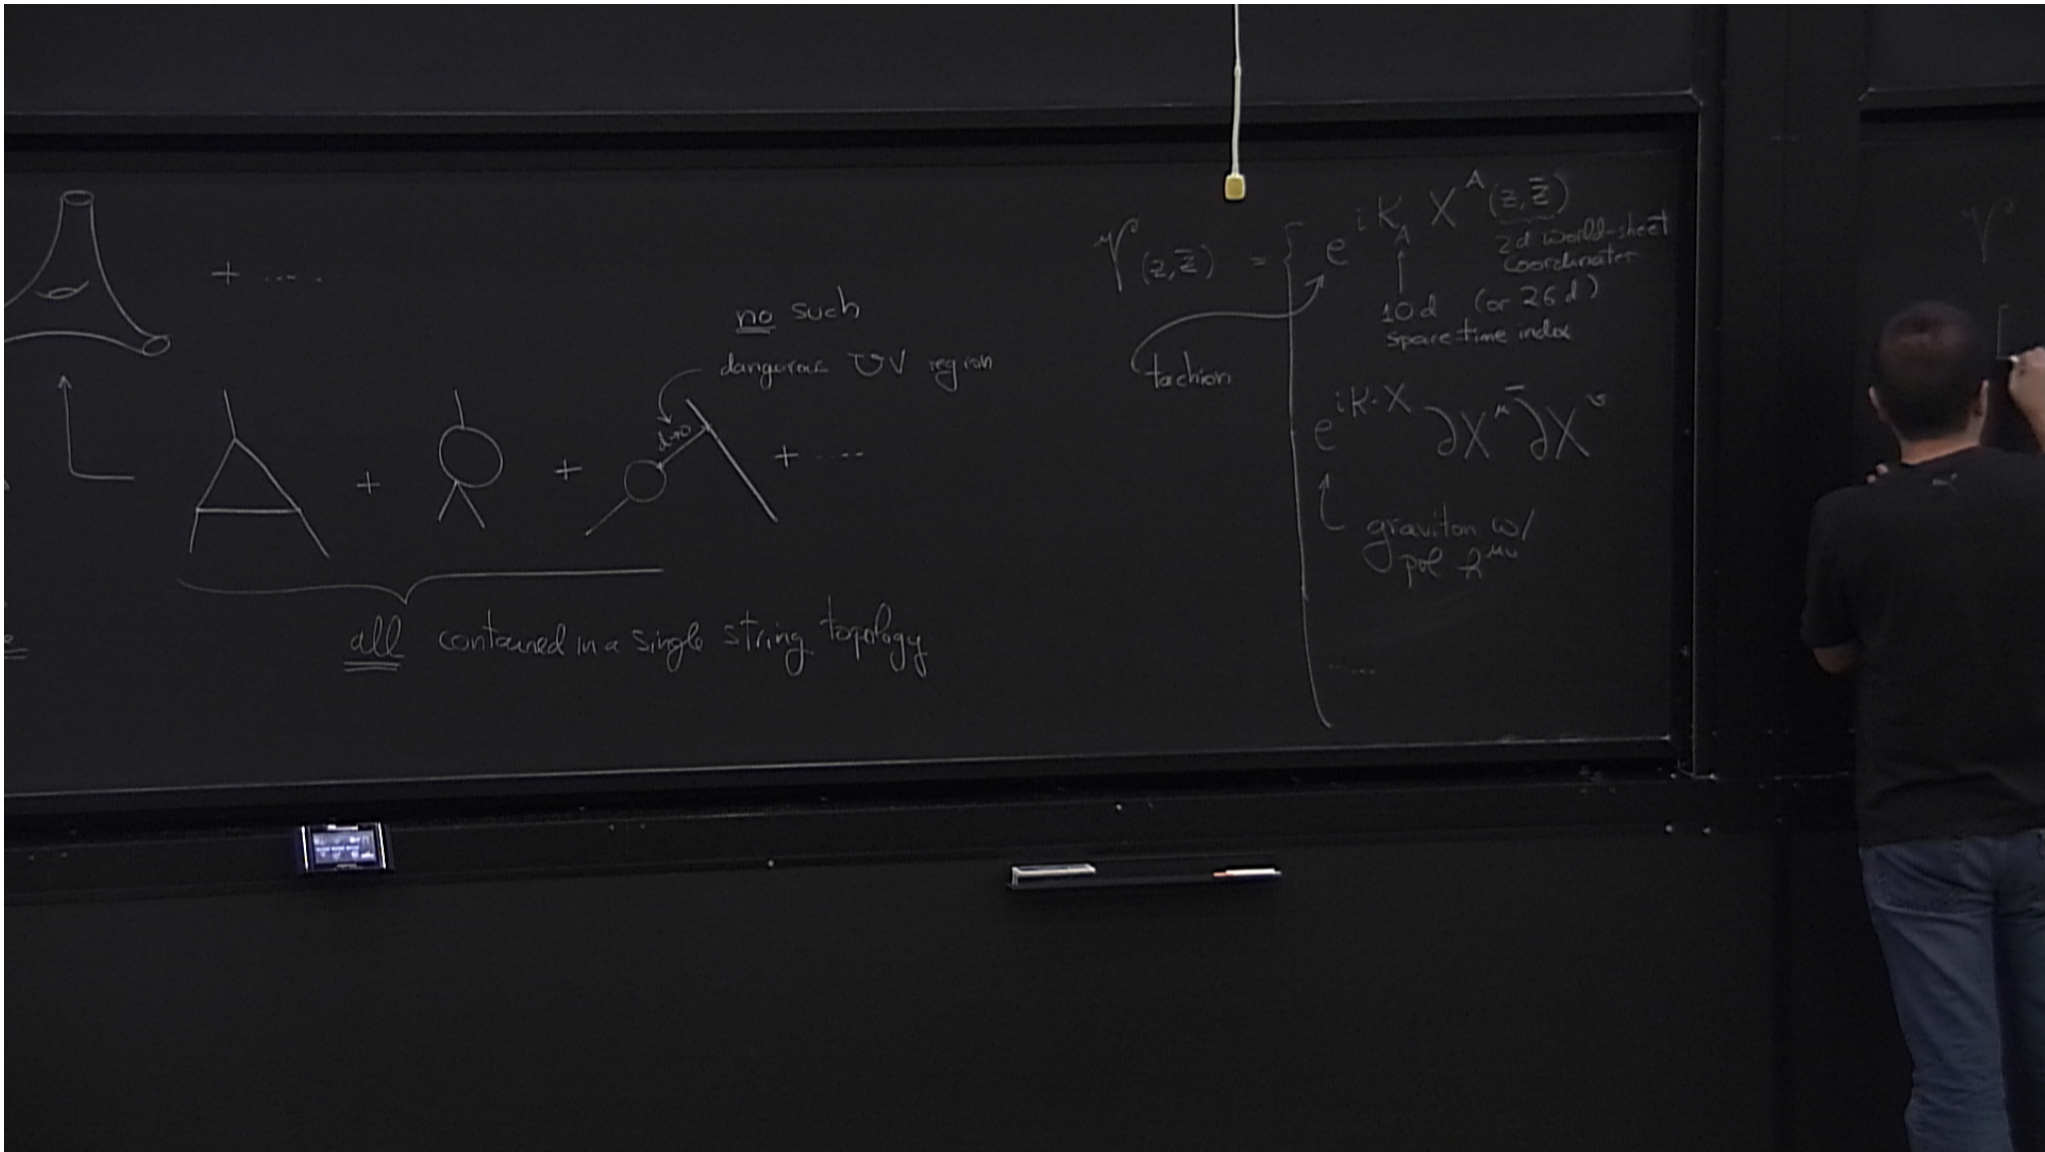 + ....
no such
dangarous UV region
d→0
+ + + ....
all contained in a single string topology
𝒱(z, z̄) = { e^{i K_A X^A (z, z̄)}
2d world-sheet
coordinates
10d (or 26d)
space-time index
tachion
e^{iK·X} ∂X^μ ∂̄X^ν
graviton w/
pol h^{μν}
.....